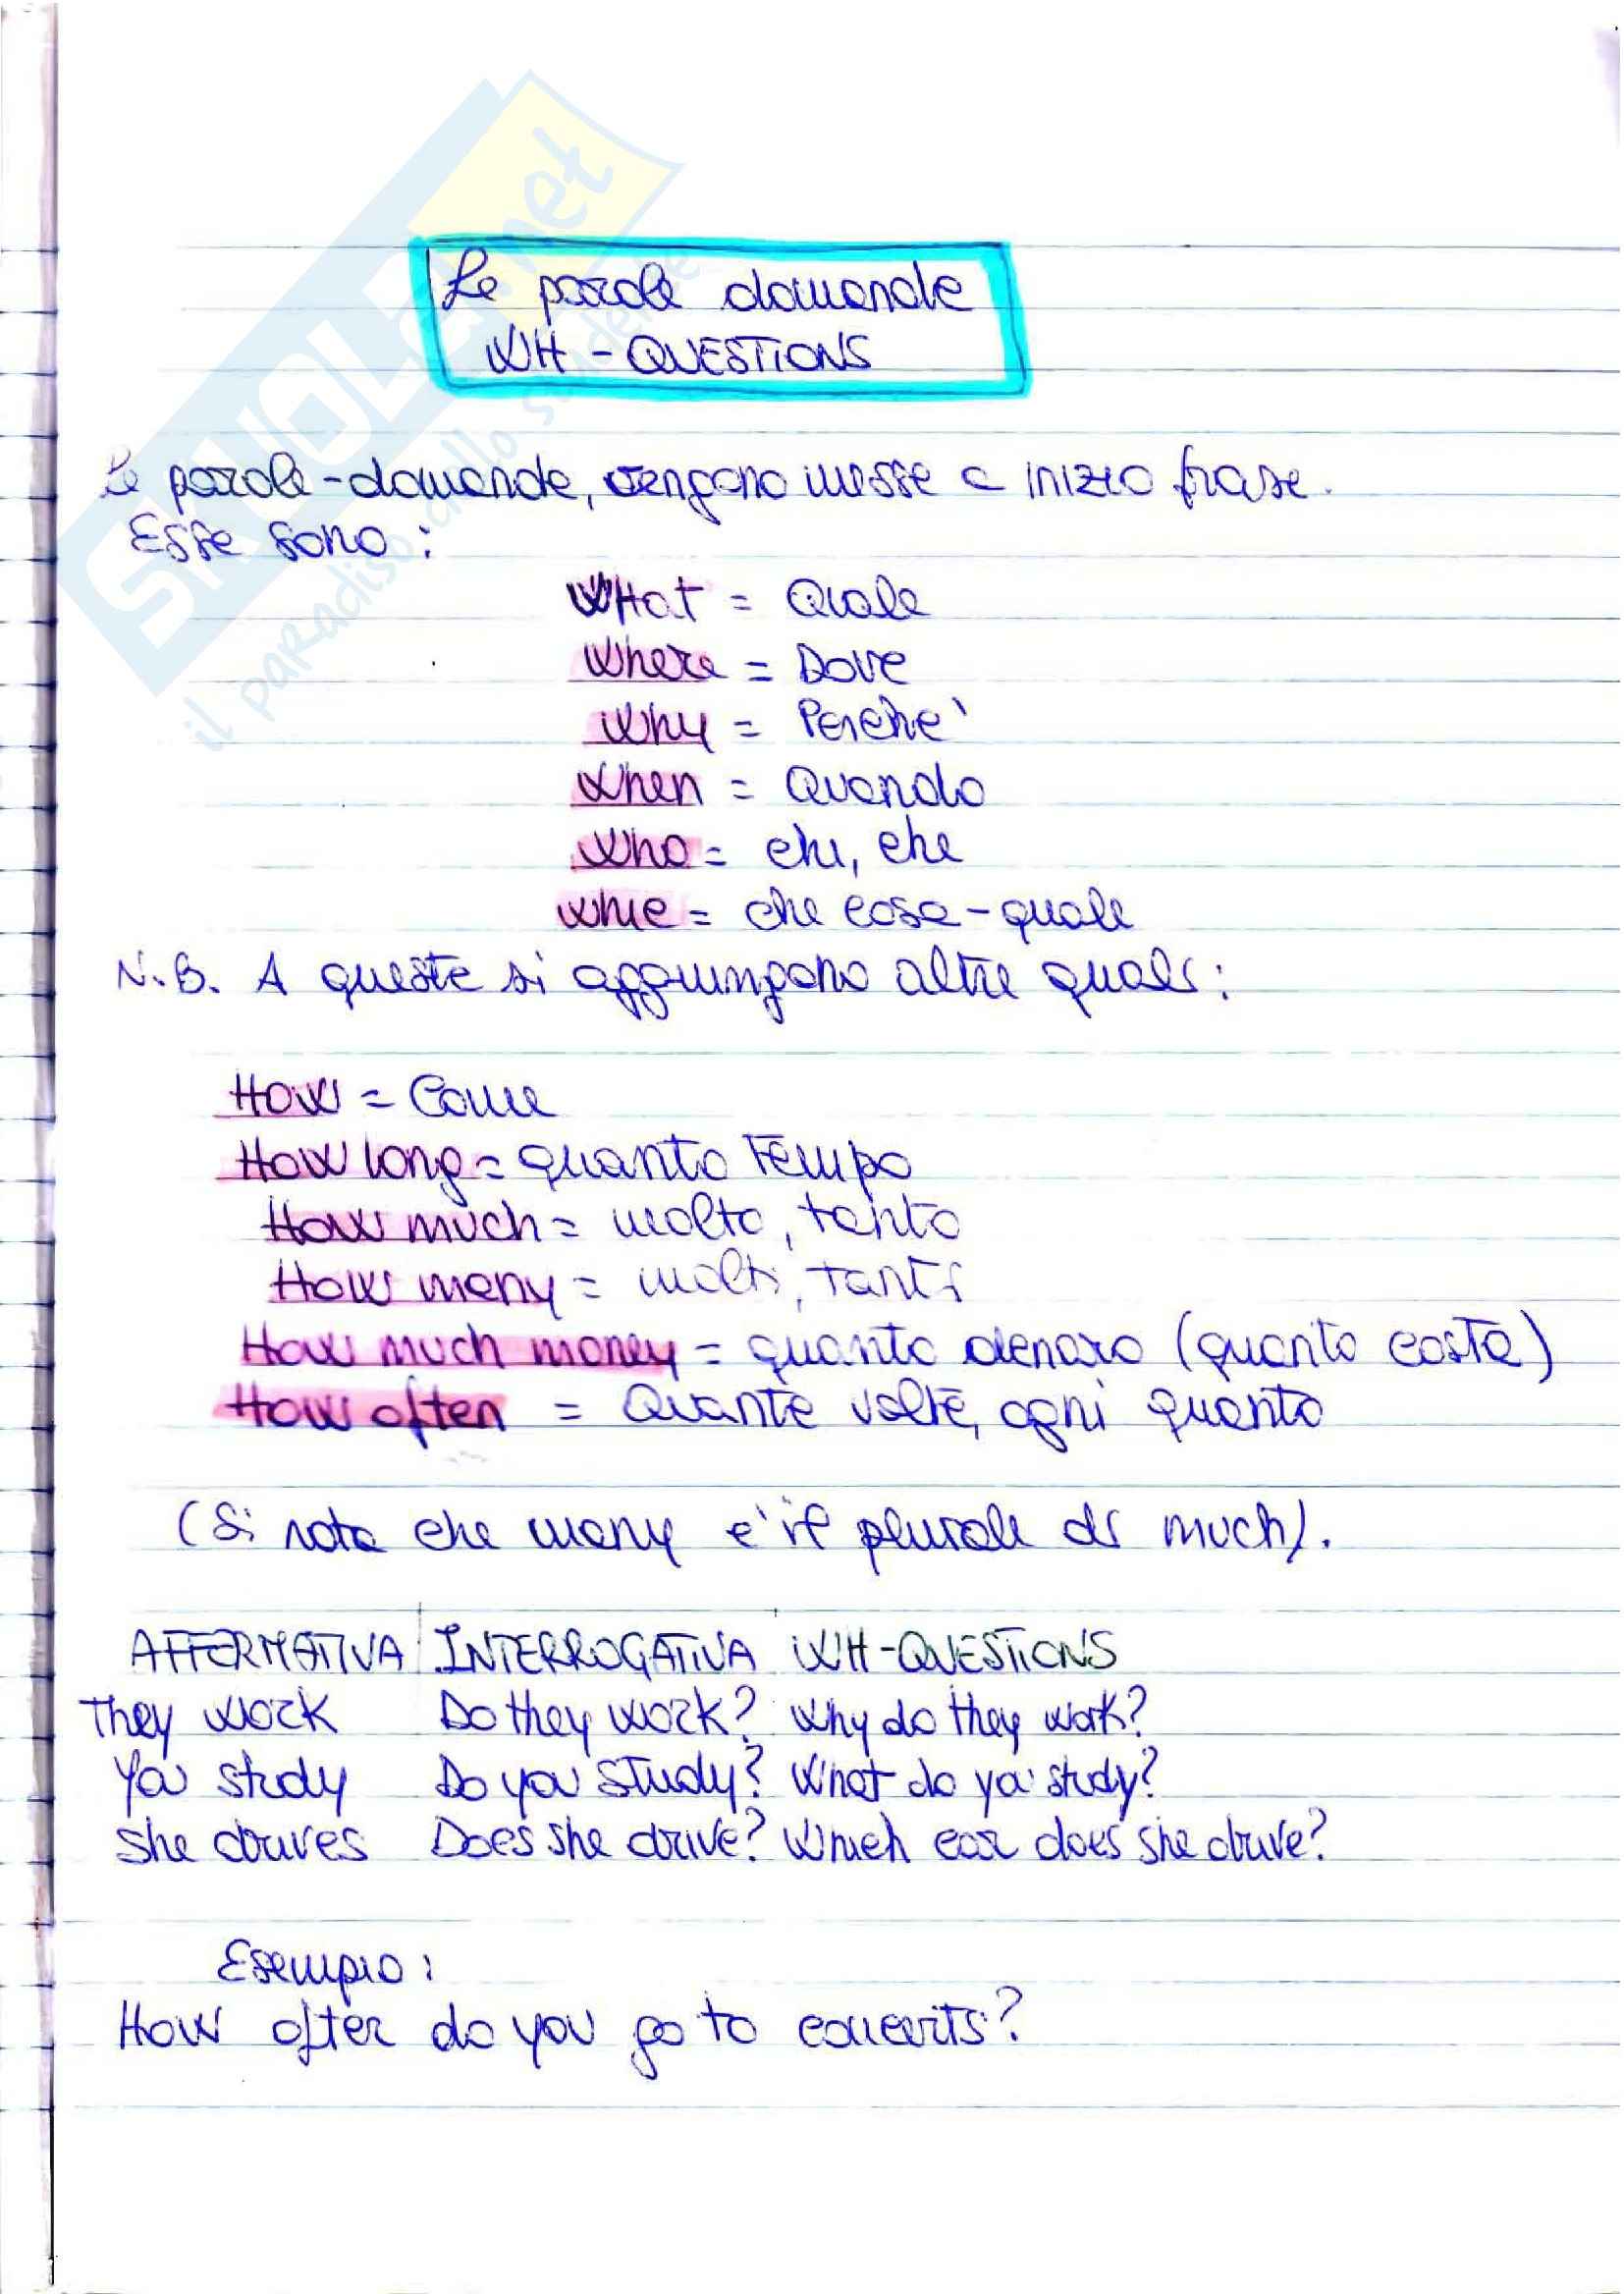 SKUOLA.net
il paradiso dello studente
Le parole domande
WH - QUESTIONS
Le parole-domande, vengono messe a inizio frase.
Esse sono:
WHat = Quale
Where = Dove
Why = Perche'
When = Quando
Who = chi, che
Whic = che cosa - quale
N.B. A queste si aggiungono altre quali:
How = Come
How long = quanto tempo
How much = molto, tanto
How many = molti, tanti
How much money = quanto denaro (quanto costa)
How often = Quante volte, ogni quanto
(Si nota che many e' il plurale di much).
AFFERMATIVA INTERROGATIVA WH-QUESTIONS
They work Do they work? Why do they work?
You study Do you study? What do you study?
She drives Does she drive? Which car does she drive?
Esempio:
How often do you go to concerts?